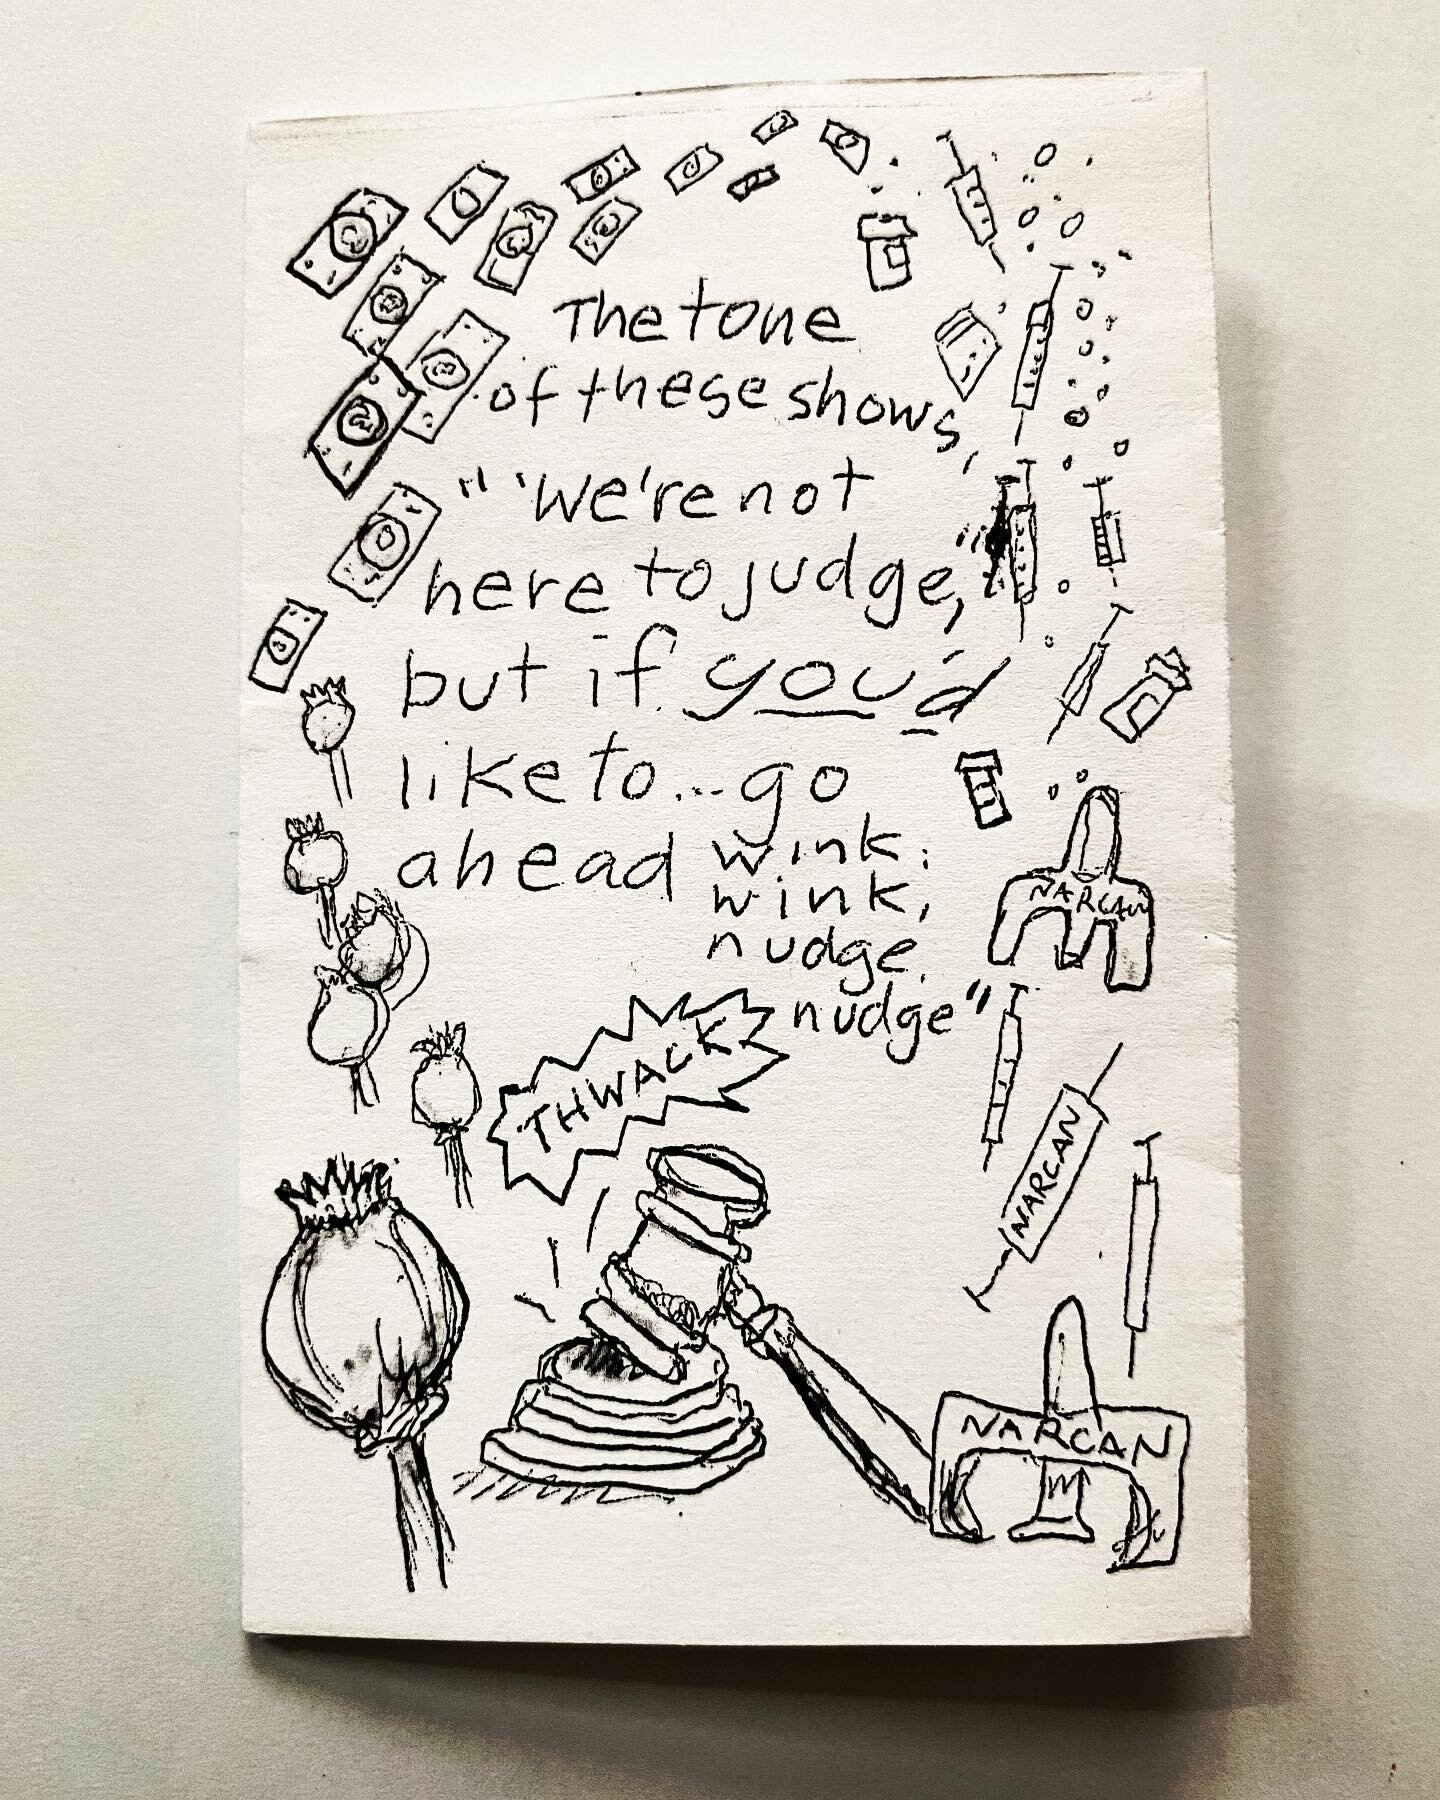 The tone
of these shows,
"'We're not
here to judge,'"
but if you'd
like to...go
ahead wink,
wink,
nudge,
nudge"
THWACK
NARCAN
NARCAN
NARCAN